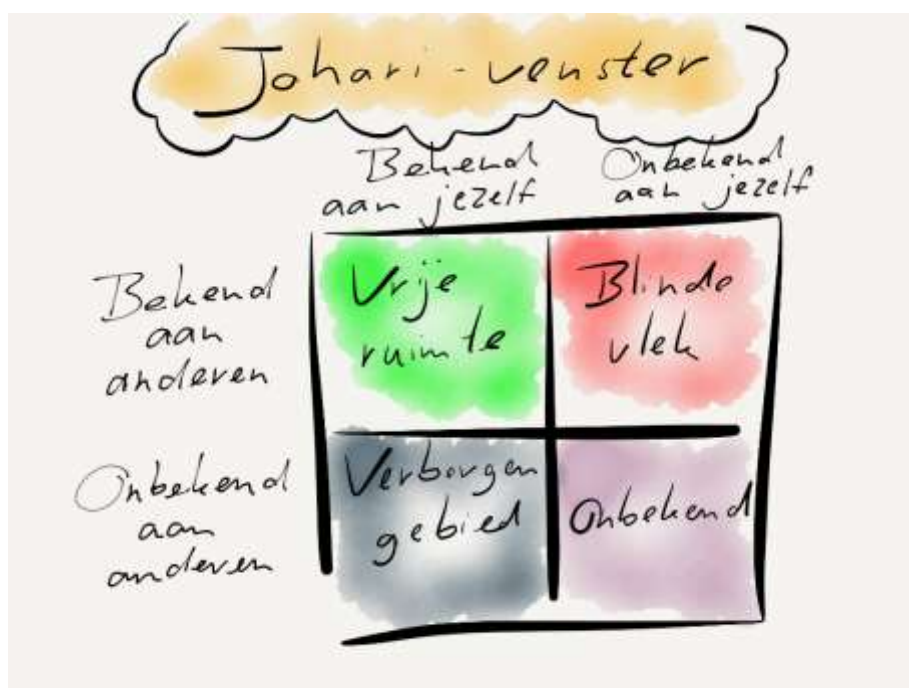 Johari-venster
Bekend
aan jezelf
Onbekend
aan jezelf
Bekend
aan
anderen
Vrije
ruimte
Blinde
vlek
Onbekend
aan
anderen
Verborgen
gebied
Onbekend